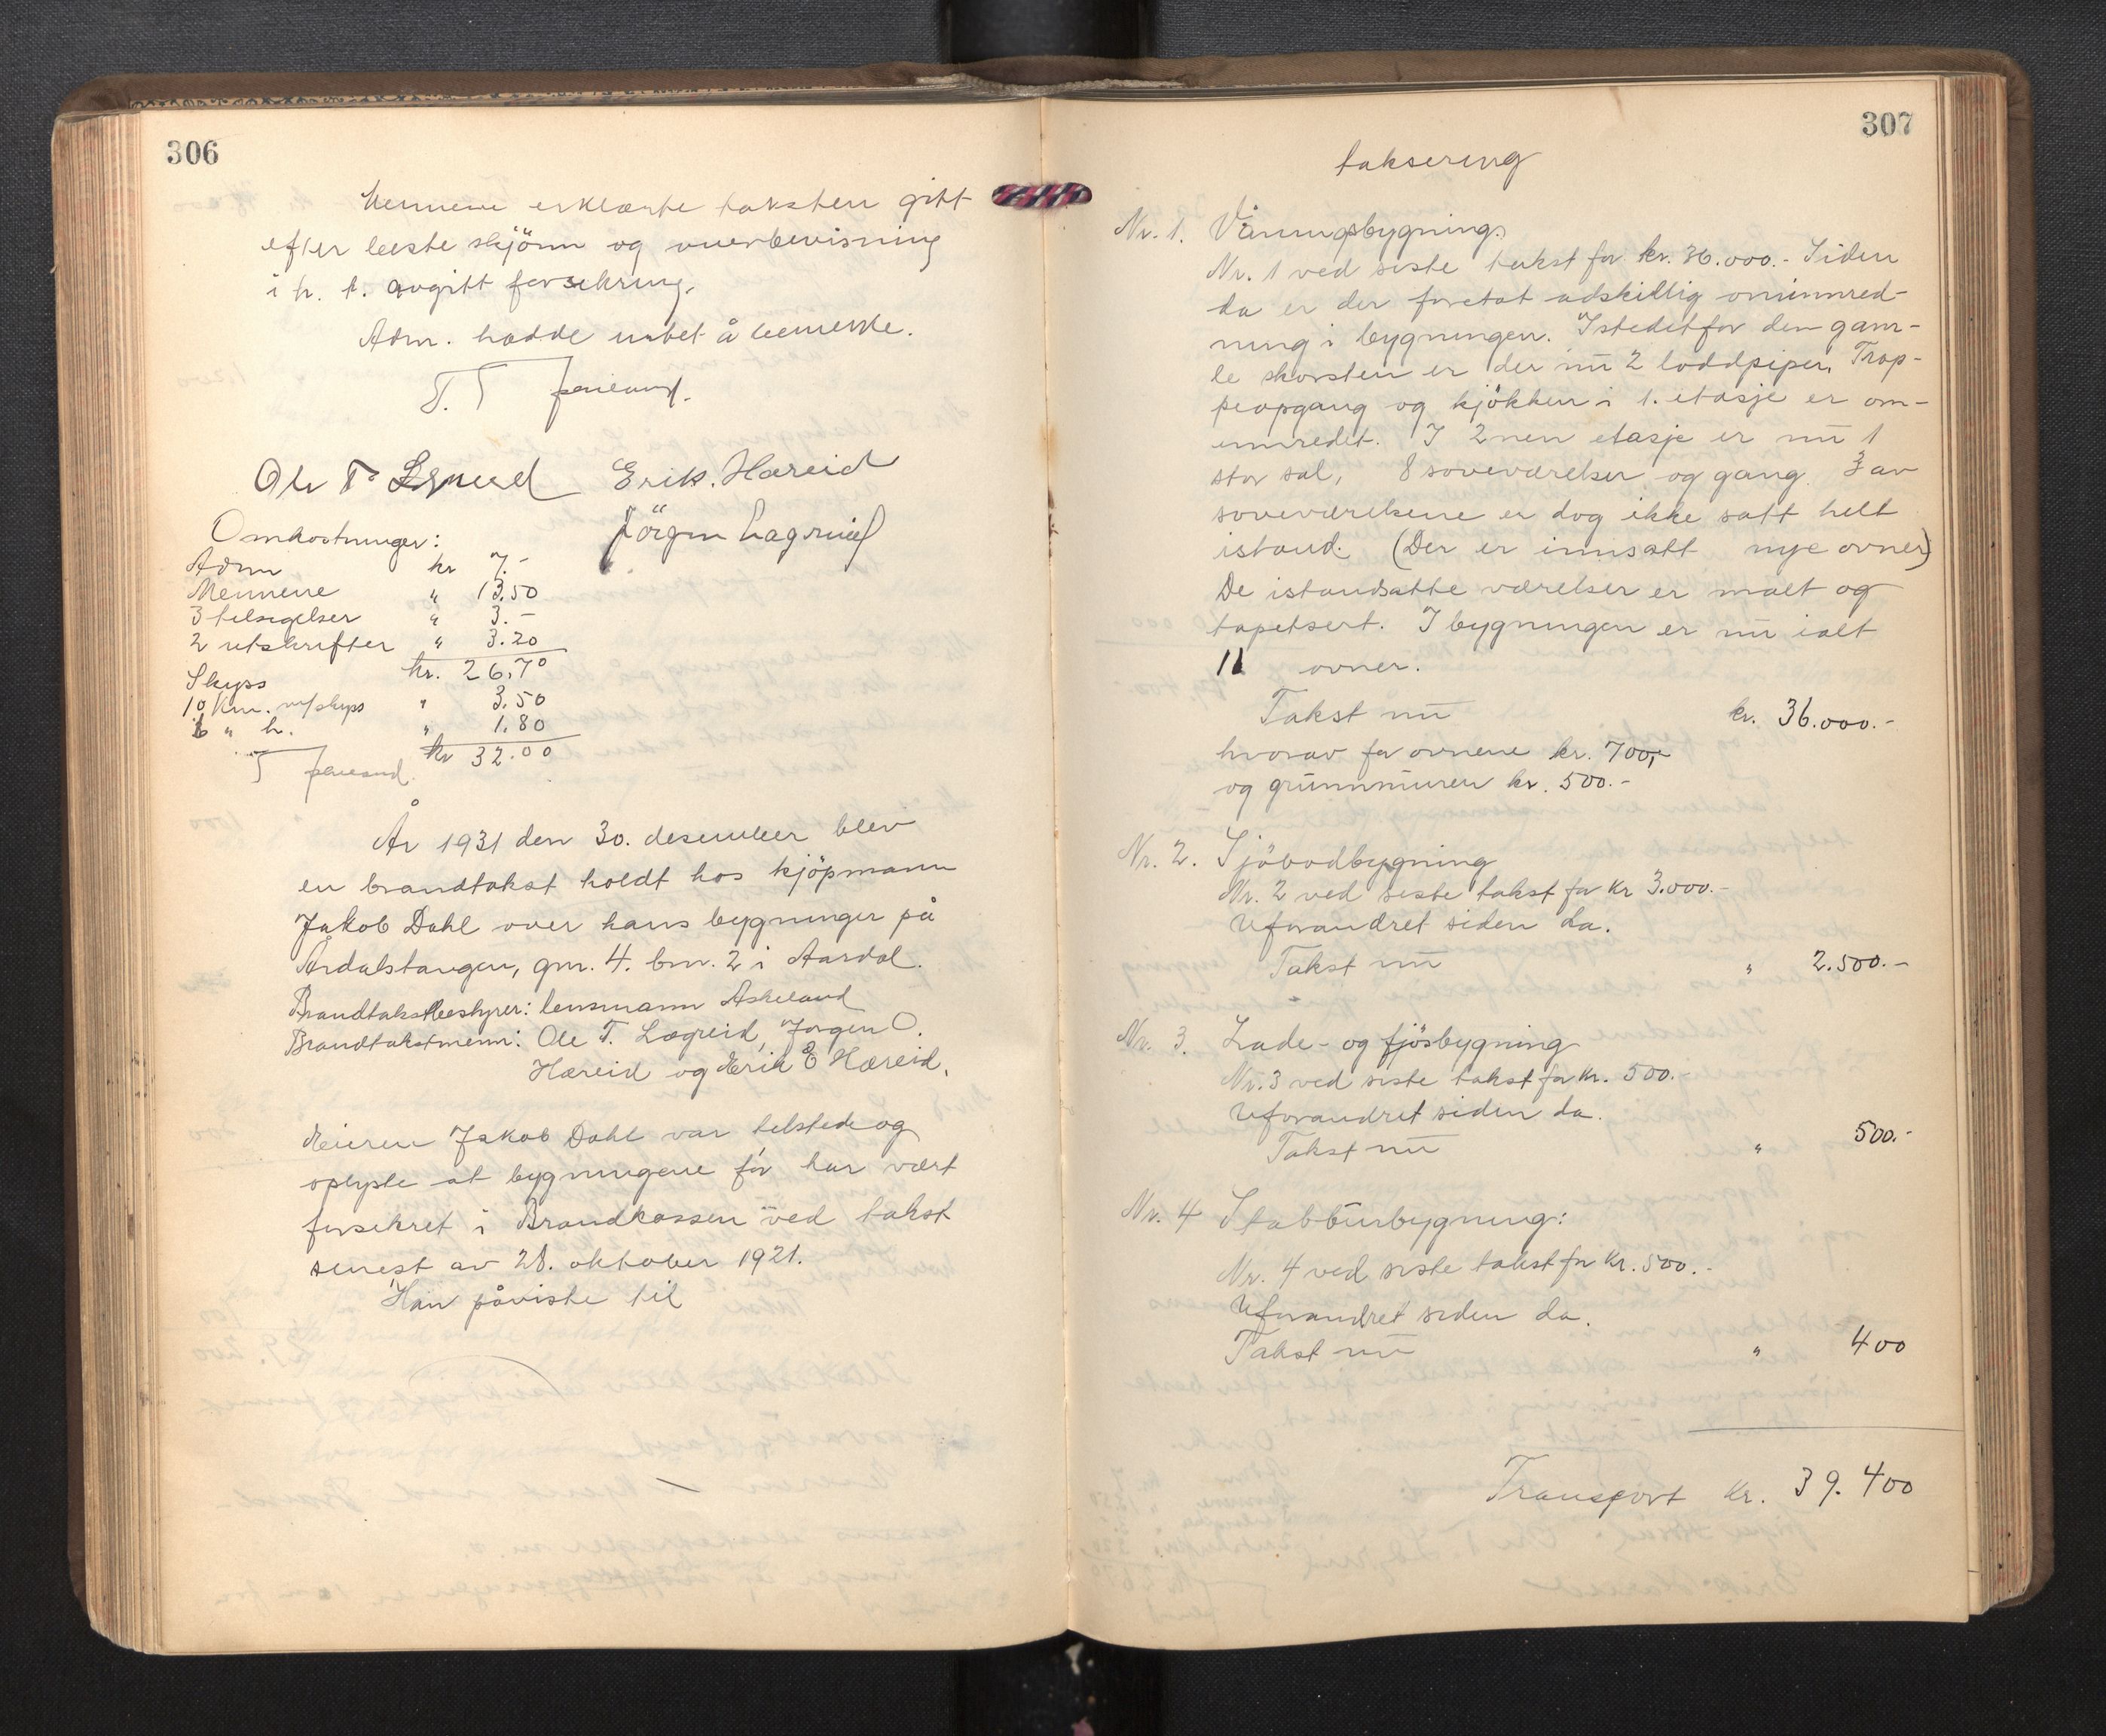 306
Mennene erklærte taksten gitt
efter beste skjönn og overbevisning
i h. t. avgitt forsikring.
Adm. hadde intet å bemerke.
T. T
Ole T. Lægreid Erik. Hæreid
Omkostninger: Jörgen
Adm kr 7.-
Mennene " 13.50
3 tilsigelser " 3.-
2 utskrifter " 3.20
kr. 26.70
Skyss
10 km. m/skyss " 3,50
6 " h. " 1.80
kr 32.00
År 1931 den 30. desember blev
en brandtakst holdt hos kjöpmann
Jakob Dahl over hans bygninger på
Årdalstangen, gnr. 4. bnr. 2 i Aardal.
Brandtakstbestyrer: lensmann Askeland
Brandtakstmenn: Ole T. Lægreid, Jørgen O.
Hæreid og Erik E Hæreid.
Eieren Jakob Dahl var tilstede og
oplyste at bygningene för har vært
forsikret i Brandkassen ved takst
senest av 28. oktober 1921.
Han påviste til
307
taksering
Nr. 1. Våningsbygning.
Nr. 1 ved siste takst for kr. 36.000.- Siden
da er der foretat adskillig ominnred-
ning i bygningen. Istedetfor den gam-
le skorsten er der nu 2 loddpiper. Trap-
peopgang og kjökken i 1. etasje er om-
innredet. I 2nen etasje er nu 1
stor sal, 8 soveværelser og gang. 3 av
soveværelsene er dog ikke satt helt
istand. (Der er innsatt nye ovner)
De istandsatte værelser er malt og
tapetsert. I bygningen er nu ialt
11 ovner.
Takst nu kr. 36.000.-
hvorav for ovnene kr. 700,-
og grunnmuren kr. 500.-
Nr. 2. Sjöbodbygning
Nr. 2 ved siste takst for kr 3.000.-
Uforandret siden da.
Takst nu " 2.500.-
Nr. 3. Lade- og fjösbygning
Nr. 3 ved siste takst for kr. 500.-
Uforandret siden da.
Takst nu " 500.-
Nr. 4 Stabbursbygning:
Nr. 4 ved siste takst for kr. 500.-
Uforandret siden da.
Takst nu " 400
Transport kr. 39.400